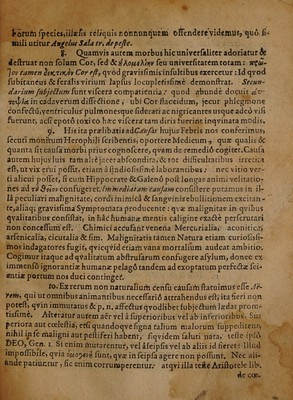 horum species, illæsis reliquis nonnunquam offendere videmus, quò si-
mili utitur Angelus Sala tr. de peste.
8. Quamvis autem morbus hic universaliter adoriatur &
destruat non solum Cor, sed & seu universitatem totam:
tamen Cor est, quod gravissimis insultibus exercetur: Id quod
subitaneus & feralis virium lapsus locupletissimè demonstrat. Secun-
darium subjectum sunt viscera competentia: quod abundè docuit
in cadaverum dissectione, ubi Cor flaccidum, jecur phlegmone
confectũ, ventriculus pulmonesque sideratic ac nigricantes usque adeò visi
fuerunt, acsi epoto toxico hæc viscera tam dirii fuerint inquinata modis.
9. His ita prælibatis ad Causas hujus Febris nos conferimus,
secuti monitum Herophili scribentis, oportere Medicum, quæ qualis &
quanta sit causa morbi prius cognoscere, quam de remedio cogitet. Causa
autem hujus luis tam altè jacet abscondita, & tot difficultatibus irretita
est, ut vix erui possit, etiam àjudiciosissimè laborantibus: nec vitio ver-
ti alicui potest, si cum Hippocrate & Galenô post longas animi velitatio-
nes ad confugeret. Immediatam causam consistere putamus in il-
la peculiari malignitate, cordi inimicâ & sanguinis ebullitionem excitan-
te, aliaq; gravissima Symptomata producente: quæ malignitas in quibus
qualitatibus consistat, in hâc humanæ mentis caligine exactè perscrutari
non concessum est. Chimici accusant venena Mercurialia, aconitica,
arsenicalia, cicutalia & sim. Malignitatis tamen Natura etiam curiosissi-
mos indagatores fugit, quicquid etiam vana mortalium audeat ambitio.
Cogimur itaque ad qualitatum abstrusarum confugere asylum, donec ex
immensô ignorantiæ humanæ pelagô tandem ad exoptatum perfectæ sci-
entiæ portum nos duci contingat.
10. Ex rerum non naturalium censu causam statuimus esse Aë-
rem, qui ut omnibus animantibus necessariò attrahendus est, ita fieri non
potest, quin immutatus & p. n. affectus quodlibet subjectum lædat prom-
tissimè. Alteratur autem aër vel à superioribus vel ab inferioribus. Su-
periora aut cœlestia, etsi quandoque signa talium malorum suppeditent,
nihil in se maligni aut pestiferi habent, siquidem saluti nata, teste ipsô
DEO, Gen. 1. Si enim mutarentur, vel à seipsis vel ab aliis id fieret: Illud
impossibile, quia sunt, quæ in seipsa agere non possunt. Nec ali-
unde patiuntur, sic enim corrumperentur: atqui illa teste Aristotele lib.
de cœ-